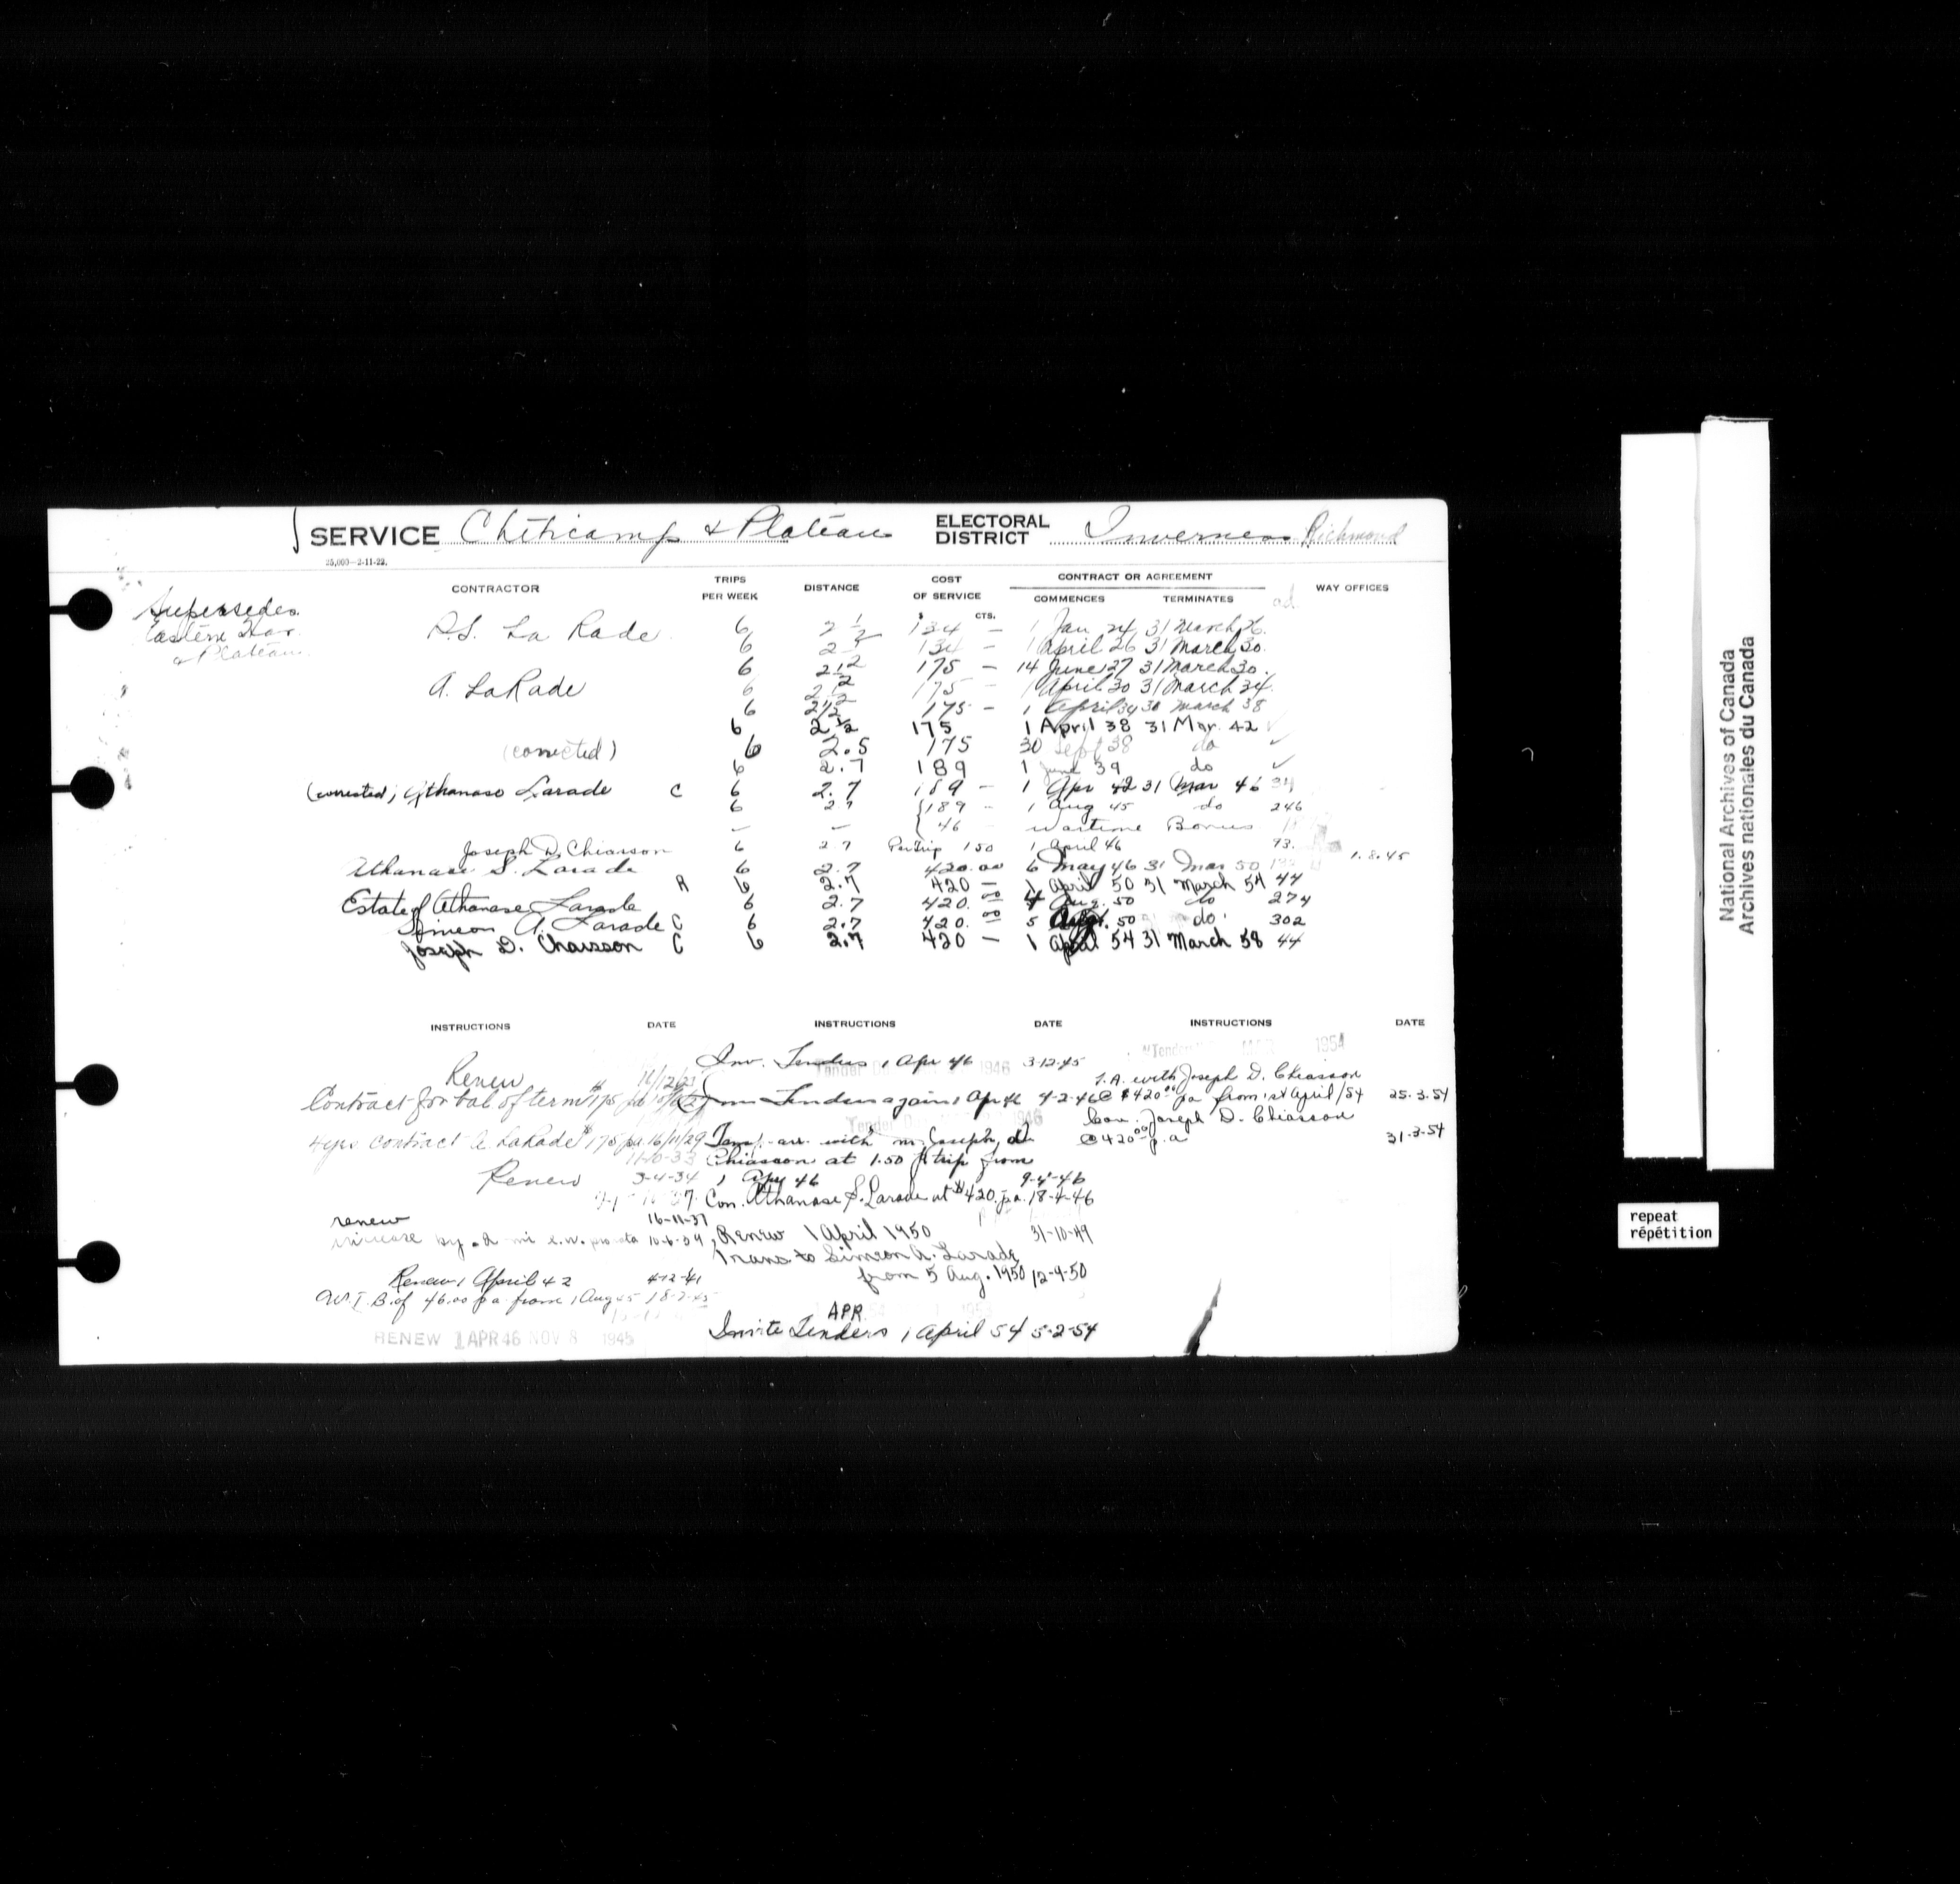 SERVICE Cheticamp & Plateau ELECTORAL DISTRICT Inverness Richmond
25,000—2-11-22.
CONTRACTOR TRIPS PER WEEK DISTANCE COST OF SERVICE CONTRACT OR AGREEMENT WAY OFFICES
$ CTS. COMMENCES TERMINATES
Supersedes
Eastern Har.
& Plateau
P.S. La Rade 6 2 1/2 134 — 1 Jan 24 31 March 26.
6 2 1/2 134 — 1 April 26 31 March 30.
6 2 1/2 175 — 14 June 27 31 March 30.
A. LaRade 6 2 1/2 175 — 1 April 30 31 March 34.
6 2 1/2 175 — 1 April 34 30 March 38
6 2 1/2 175 1 April 38 31 Mar. 42
(corrected) 6 2.5 175 30 Sept 38 do
6 2.7 189 1 June 39 do
(corrected) Athanase Larade C 6 2.7 189 — 1 Apr 42 31 Mar 46
6 2.7 189 — 1 Aug 45 do 246
— — 46 — Wartime Bonus
Joseph D. Chiasson 6 2.7 Per trip 1 50 1 April 46 93. 1.8.45
Athanase S. Larade 6 2.7 420.00 6 May 46 31 Mar 50
R 6 2.7 420 — 1 April 50 31 March 54 44
Estate of Athanase Larade 6 2.7 420.00 4 Aug. 50 do 274
Simeon A. Larade C 6 2.7 420.00 5 Aug. 50 do 302
Joseph D. Chaisson C 6 2.7 420 — 1 April 54 31 March 58 44
INSTRUCTIONS DATE INSTRUCTIONS DATE INSTRUCTIONS DATE
Renew
Contract for bal of term $175 pa
4 yrs contract A LaRade $175 pa 16/11/29
11-10-33
Renew 3-4-34
renew 16-11-37
increase by .2 mi pro rata 10-6-39
Renew 1 April 42 4-12-41
W.T.B. of 46.00 pa from 1 Aug 45 18-7-45
RENEW 1 APR 46 NOV 8 1945
Inv. Tenders 1 Apr 46 3-12-45
Tenders again 1 Apr 46 4-2-46
Temp. arr. with Mr. Joseph D.
Chiasson at 1.50 p trip from
1 Apr 46 9-4-46
Con. Athanase S. Larade at $420. p.a. 18-4-46
Renew 1 April 1950 31-10-49
Trans. to Simeon A. Larade
from 5 Aug. 1950 12-9-50
APR
Invite Tenders 1 April 54 5-2-54
"Tender MAR 1954
T.A. with Joseph D. Chiasson
@ $420.00 pa from 1st April/54 25.3.54
Con. Joseph D. Chiasson
@ 420.00 p.a 31-3-54
National Archives of Canada
Archives nationales du Canada
repeat
répétition